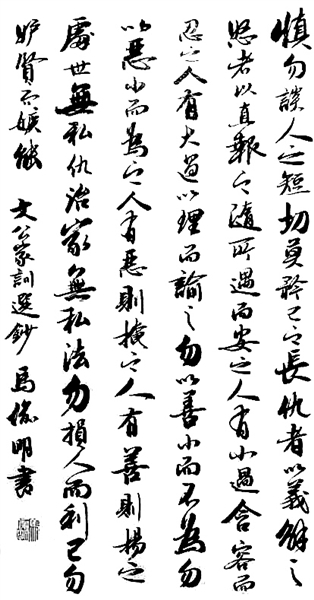 慎勿談人之短切莫矜己之長仇者以義解之
怨者以直報之隨所遇而安之人有小過含容而
忍之人有大過以理而諭之勿以善小而不為勿
以惡小而為之人有惡則掩之人有善則揚之
處世無私仇治家無私法勿損人而利己勿
妒賢而嫉能 文公家訓選鈔 馬明書